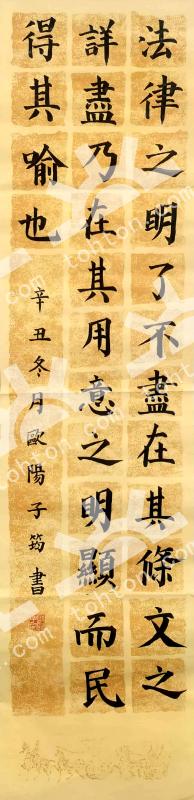 法律之明了不盡在其條文之
詳盡乃在其用意之明顯而民
得其喻也
辛丑冬月歐陽子筠書
tohton.com